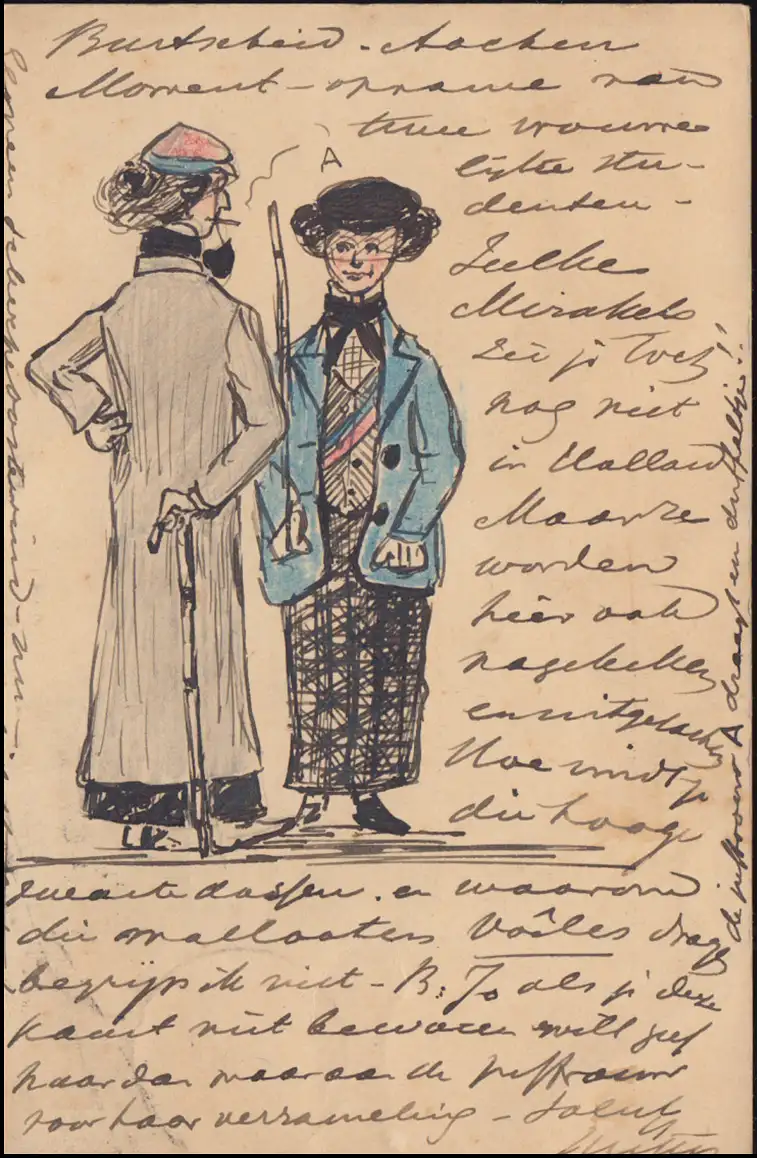 Burtscheid - Aachen
Moment-opname van
twee vrouwe
lijke stu-
denten -
A
Zulke
Mirakels
zie je toch
nog niet
in Holland
Maar ze
worden
hier ook
nagekeken
en uitgelachen
Hoe vindt je
die hooge
zwarte dassen. en waarom
die mallooten voîles dragen
begrijp ik niet - B: Jo als je deze
kaart niet bewaren wilt geef
haar dan aan de juffrouw
voor haar verzameling - Saluut
de juffrouw A draagt en duffeltje!!
scherpe oostenwind